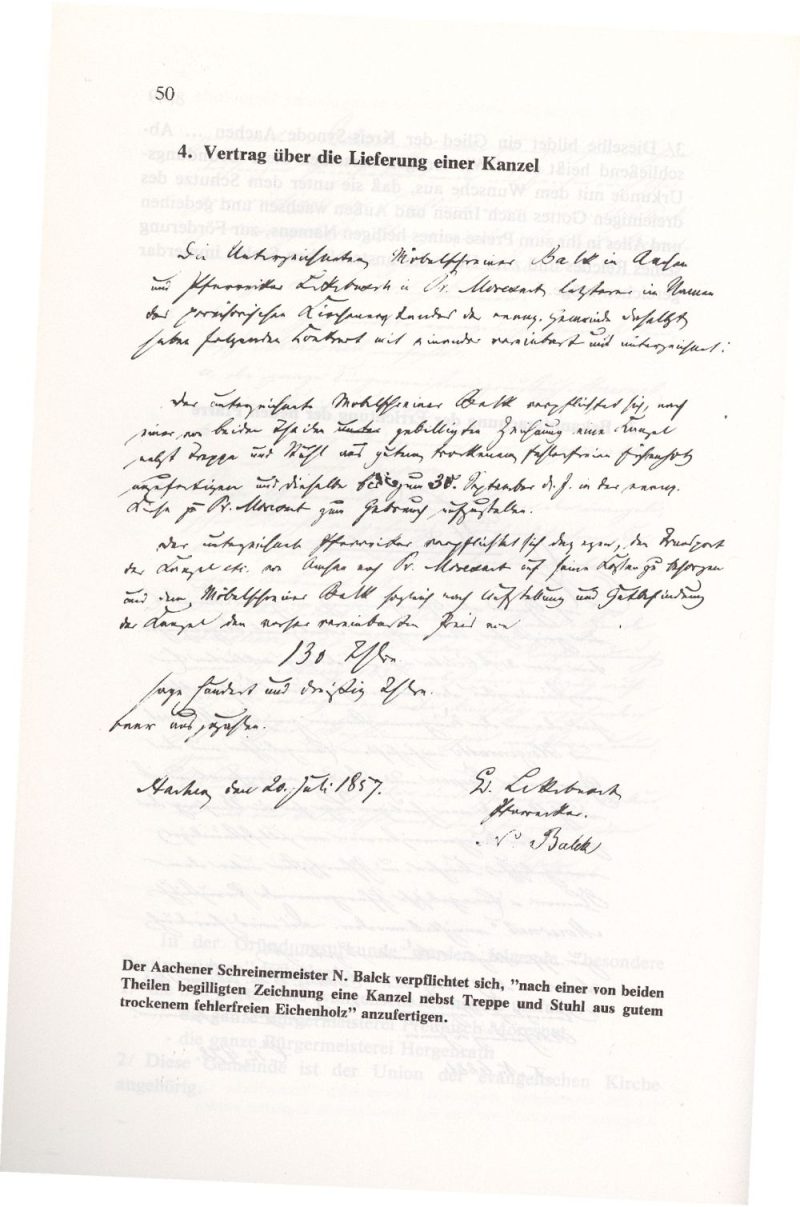 50
4. Vertrag über die Lieferung einer Kanzel
Die Unterzeichneten, Möbelschreiner Balck in Aachen
und Pfarrvikar Lekebusch in Pr. Moresnet, letzterer im Namen
des provisorischen Kirchenvorstandes der evang. Gemeinde daselbst
haben folgenden Contract mit einander vereinbart und unterzeichnet:
Der unterzeichnete Möbelschreiner Balck verpflichtet sich, nach
einer von beiden Theilen gebilligten Zeichnung eine Kanzel
nebst Treppe und Stuhl aus gutem trockenem fehlerfreien Eichenholz
anzufertigen und dieselbe bis zum 30. September d. J. in der evang.
Kirche zu Pr. Moresnet zum Gebrauch aufzustellen.
Der unterzeichnete Pfarrvikar verpflichtet sich dagegen, den Transport
der Kanzel etc. von Aachen nach Pr. Moresnet auf seine Kosten zu besorgen
und dem Möbelschreiner Balck sogleich nach Aufstellung und Gutbefindung
der Kanzel den vorher vereinbarten Preis von
130 Thlrn
sage hundert und dreißig Thlrn.
baar auszuzahlen.
Aachen, den 20. Juli 1857.
Pfarrvikar.
N. Balck
Der Aachener Schreinermeister N. Balck verpflichtet sich, "nach einer von beiden
Theilen begilligten Zeichnung eine Kanzel nebst Treppe und Stuhl aus gutem
trockenem fehlerfreien Eichenholz" anzufertigen.